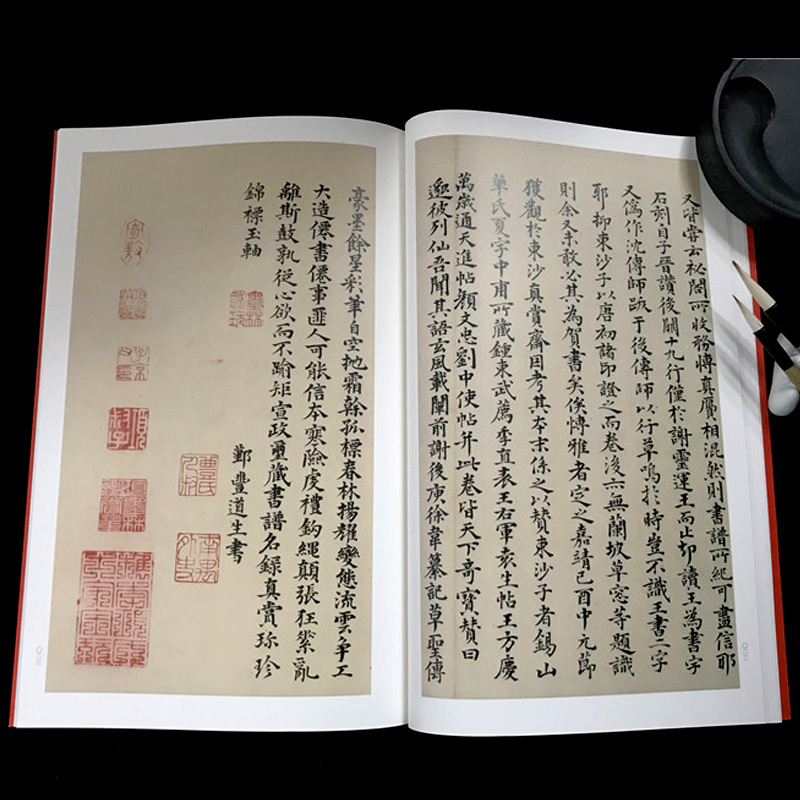 又嘗云秘閣所收務博真贗相混然則書譜所紀可盡信耶
石刻自子晉讚後闕十九行僅於謝靈運王而止却讀王為書字
又偽作沈傳師跋于後傳師以行草鳴於時豈不識王書二字
耶抑東沙子以唐初諸印證之而卷後亦無蘭坡草窓等題識
則余又未敢必其為賀書矣俟博雅者定之嘉靖己酉中元節
獲觀於東沙真賞齋因考其本末係之以贊東沙子者錫山
華氏夏字中甫所藏鍾東武薦季直表王右軍袁生帖王方慶
萬歲通天進帖顏文忠劉中使帖并此卷皆天下奇寶贊曰
邈彼列仙吾聞其語玄風載闡前謝後庾徐韋纂記草聖傳
豪墨餘星彩筆自空抛霜幹孤標春林揚耀變態流雲爭工
大造僊書僊事匪人可能信本寒險虔禮鈎繩顛張狂縈亂
離斯鼓孰從心欲而不踰矩宣政重藏書譜名録真賞珎珍
錦褾玉軸
鄞豐道生書
豐氏人叔
南禺外史